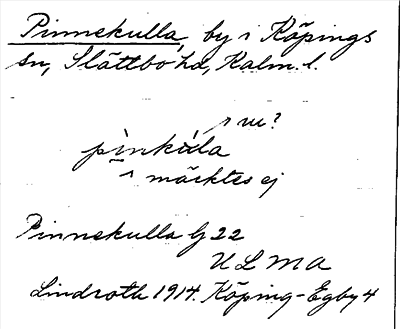 Pinnekulla, by i Köpings
sn, Slättbo hd, Kalm. l.
r m?
pìnkúla
^ märktes ej
Pinnekulla G 22
ULMA
Lindroth 1914. Köping-Egby 4